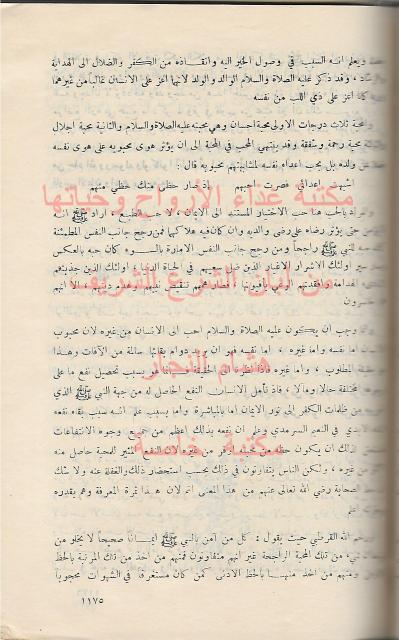 ويعلم انه السبب في وصول الخير اليه وانقاذه من الكفر والضلال الى الهداية
وقد ذكر عليه الصلاة والسلام الوالد والولد لانهما اعز على الانسان غالبا من غيرهما
كانا اعز على ذي اللب من نفسه
ثلاث درجات الاولى محبة احسان وهي محبته عليه الصلاة والسلام والثانية محبة اجلال
محبة رحمة وشفقة وقد ينتهي المحب في المحبة الى ان يؤثر هوى محبوبه على هوى نفسه
والده بل يحب اعداء نفسه لمشابهتهم محبوبه قال :
اشبهت اعدائي فصرت احبهم إذ صار حظي منك حظي منهم
مكتبة غذاء الأرواح وحياتها
بالحب هنا حب الاختيار المستند الى الايمان ، لا حب الطبع ، اراد ﷺ انه
حتى يؤثر رضاه على رضى والديه وان كان فيه هلاكهما فمن رجح جانب النفس المطمئنة
للنبي ﷺ راجحا ومن رجح جانب النفس الامارة بالسوء كان حبه بالعكس
اولئك الاشرار الاغيار الذين ضل سعيهم في الحياة الدنيا ، اولئك الذين
من لبنان القرع للشريف
الا انهم
وجب ان يكون عليه الصلاة والسلام احب الى الانسان من غيره لان محبوب
اما نفسه واما غيره ، اما نفسه فهو ان يريد دوام بقائها سالمة من الآفات وهذا
المطلوب ، واما غيره فاذا
هشام النجار
بسبب تحصيل نفع ما على
مختلفة حالا ومآلا ، فاذا تأمل الانسان النفع الحاصل له من جهة النبي ﷺ الذي
من ظلمات الكفر الى نور الايمان اما بالمباشرة واما بسبب علم انه سبب بقاء نفسه
في النعيم السرمدي وعلم ان نفعه بذلك اعظم من جميع وجوه الانتفاعات
مكتبة خاصة
لذلك ان يكون حظه من محبته اوفر من غيره لان النفع المثير للمحبة حاصل منه
من غيره ، ولكن الناس يتفاوتون في ذلك بحسب استحضار ذلك والغفلة عنه ولا شك
الصحابة رضي الله تعالى عنهم من هذا المعنى اتم لان هذا ثمرة المعرفة وهم بقدره
اعلم
الله القرطبي حيث يقول : كل من آمن بالنبي ﷺ ايمانا صحيحا لا يخلو من
من تلك المحبة الراجحة غير انهم متفاوتون فمنهم من اخذ من تلك المرتبة بالحظ
ومنهم من اخذ منها بالحظ الادنى كمن كان مستغرقا في الشهوات محجوبا
١١٧٥